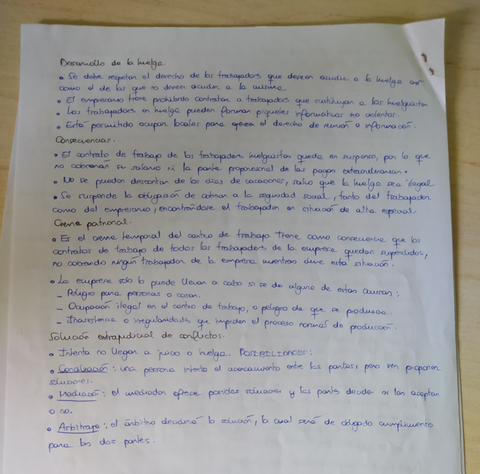 Desarrollo de la huelga
• Se debe respetar el derecho de los trabajadores que deseen acudir a la huelga así
como el de los que no deseen acudir a la misma.
• El empresario tiene prohibido contratar a trabajadores que sustituyan a los huelguistas
• Los trabajadores en huelga pueden formar piquetes informativos no violentos.
• Está permitido ocupar locales para el derecho de reunión o información.
Consecuencias.
• El contrato de trabajo de los trabajadores huelguistas queda en suspenso, por lo que
no cobrarán su salario ni la parte proporcional de las pagas extraordinarias.
• No se pueden descontar de los días de vacaciones, salvo que la huelga sea ilegal
• Se suspende la obligación de cotizar a la seguridad social, tanto del trabajador
como del empresario, encontrándose el trabajador en situación de alta especial.
Cierre patronal.
• Es el cierre temporal del centro de trabajo. Tiene como consecuencia que los
contratos de trabajo de todos los trabajadores de la empresa quedan suspendidos,
no cobrando ningún trabajador de la empresa mientras dure esta situación.
• La empresa solo lo puede llevar a cabo si se da alguna de estas causas:
- Peligro para personas o cosas.
- Ocupación ilegal en el centro de trabajo, o peligro de que se produzca.
- Inasistencia o irregularidades que impiden el proceso normal de producción.
Solución extrajudicial de conflictos.
• Intenta no llegar a juicio o huelga. POSIBILIDADES:
• Conciliación: una persona intenta el acercamiento entre las partes, pero sin proponer
soluciones.
• Mediación: el mediador ofrece posibles soluciones y las partes deciden si las aceptan
o no.
• Arbitraje: el árbitro decidirá la solución, la cual será de obligado cumplimiento
para las dos partes.